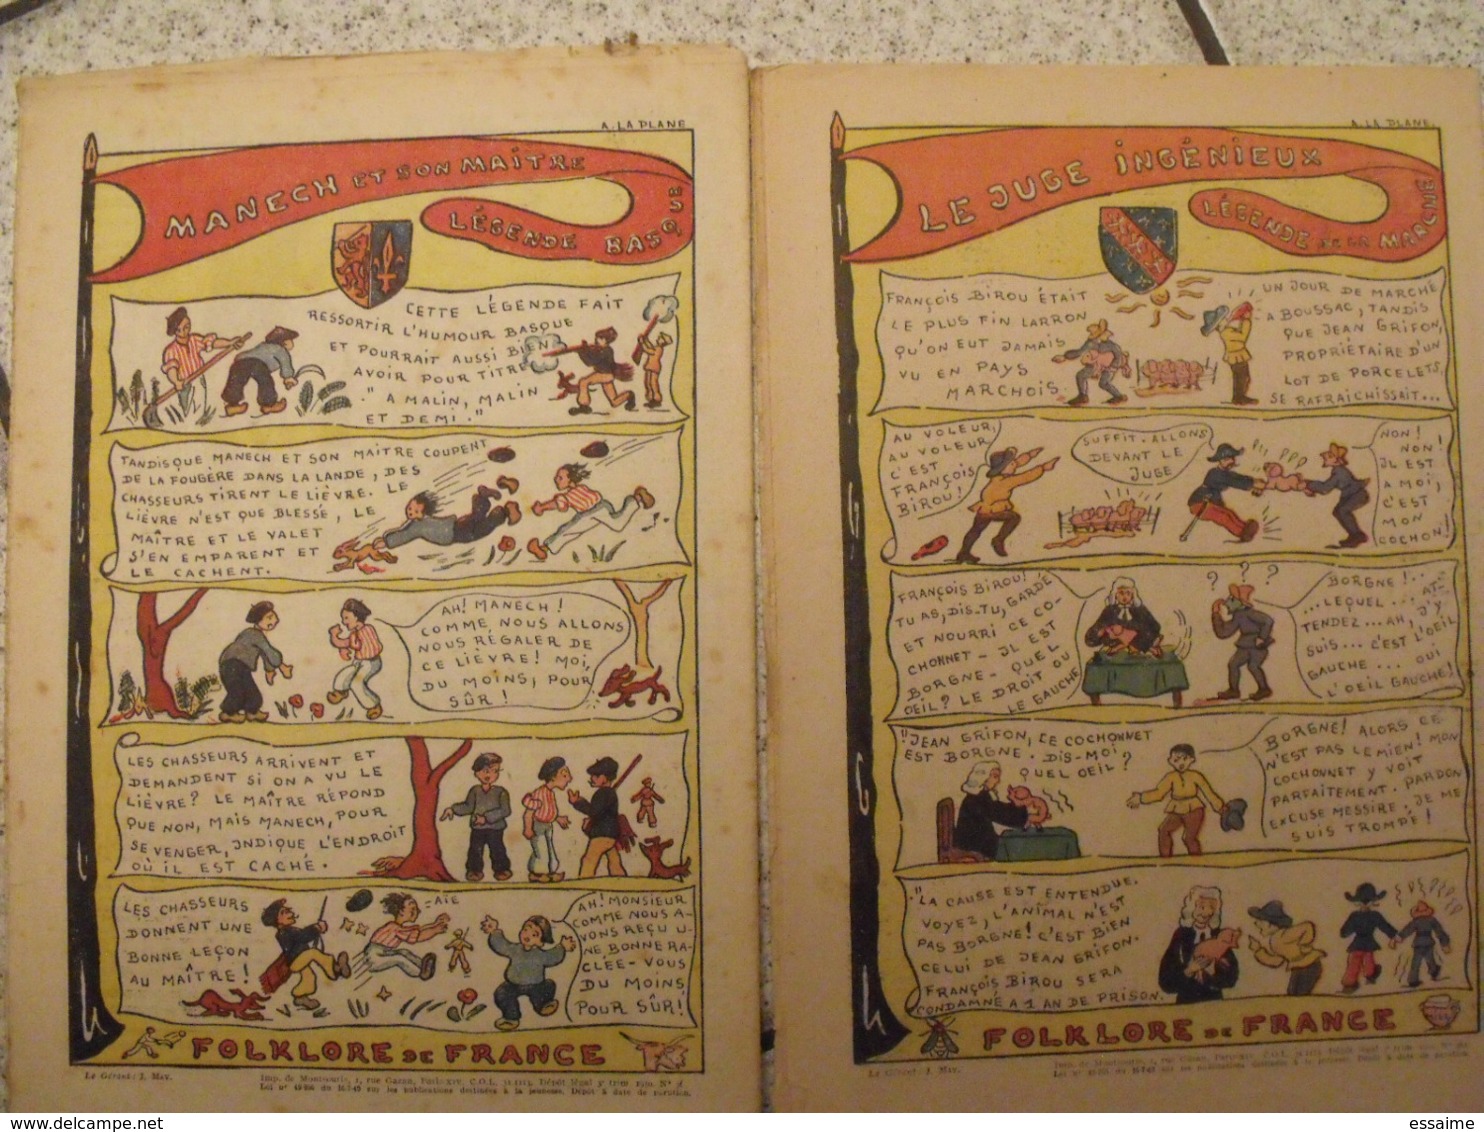 A. LA PLANE
MANECH ET SON MAÎTRE
LÉGENDE BASQUE
CETTE LÉGENDE FAIT
RESSORTIR L'HUMOUR BASQUE
ET POURRAIT AUSSI BIEN
AVOIR POUR TITRE
"A MALIN, MALIN
ET DEMI."
TANDIS QUE MANECH ET SON MAITRE COUPENT
DE LA FOUGÈRE DANS LA LANDE, DES
CHASSEURS TIRENT LE LIÈVRE. LE
LIÈVRE N'EST QUE BLESSÉ, LE
MAÎTRE ET LE VALET
S'EN EMPARENT ET
LE CACHENT.
AH! MANECH!
COMME NOUS ALLONS
NOUS RÉGALER DE
CE LIÈVRE! MOI,
DU MOINS, POUR
SÛR!
LES CHASSEURS ARRIVENT ET
DEMANDENT SI ON A VU LE
LIÈVRE? LE MAÎTRE RÉPOND
QUE NON, MAIS MANECH, POUR
SE VENGER, INDIQUE L'ENDROIT
OÙ IL EST CACHÉ.
LES CHASSEURS
DONNENT UNE
BONNE LEÇON
AU MAÎTRE!
AÏE
AH! MONSIEUR
COMME NOUS A-
VONS REÇU U-
NE BONNE RA-
CLEE - VOUS
DU MOINS,
POUR SÛR!
FOLKLORE DE FRANCE
Le Gérant: J. MAY.
Imp. de Montsouris, 1, rue Gazan, Paris-XIV. C.O.L. 31.1213. Dépôt légal
Loi n° 49 956 du 16-7-49 sur les publications destinées à la jeunesse. Dépôt à date de parution.
A. LA PLANE.
LE JUGE INGÉNIEUX
LÉGENDE DE LA MARCHE
FRANÇOIS BIROU ÉTAIT
LE PLUS FIN LARRON
QU'ON EUT JAMAIS
VU EN PAYS
MARCHOIS.
UN JOUR DE MARCHÉ
A BOUSSAC, TANDIS
QUE JEAN GRIFON,
PROPRIÉTAIRE D'UN
LOT DE PORCELETS,
SE RAFRAICHISSAIT...
AU VOLEUR,
AU VOLEUR
C'EST
FRANÇOIS
BIROU!
SUFFIT. ALLONS
DEVANT LE
JUGE
NON!
NON!
IL EST
A MOI,
C'EST
MON
COCHON!
FRANÇOIS BIROU!
TU AS, DIS-TU, GARDÉ
ET NOURRI CE CO-
CHONNET - IL EST
BORGNE - QUEL
OEIL? LE DROIT OU
LE GAUCHE
? ? ?
BORGNE!..
...LEQUEL... AT-
TENDEZ... AH, J'Y
SUIS... C'EST L'OEIL
GAUCHE... OUI
L'OEIL GAUCHE!
"JEAN GRIFON, CE COCHONNET
EST BORGNE. DIS-MOI
QUEL OEIL?
BORGNE! ALORS CE
N'EST PAS LE MIEN! MON
COCHONNET Y VOIT
PARFAITEMENT. PARDON
EXCUSE MESSIRE, JE ME
SUIS TROMPÉ!
"LA CAUSE EST ENTENDUE.
VOYEZ, L'ANIMAL N'EST
PAS BORGNE! C'EST BIEN
CELUI DE JEAN GRIFON.
FRANÇOIS BIROU SERA
CONDAMNÉ A 1 AN DE PRISON.
FOLKLORE DE FRANCE
Le Gérant: J. MAY.
essaime
delcampe.net